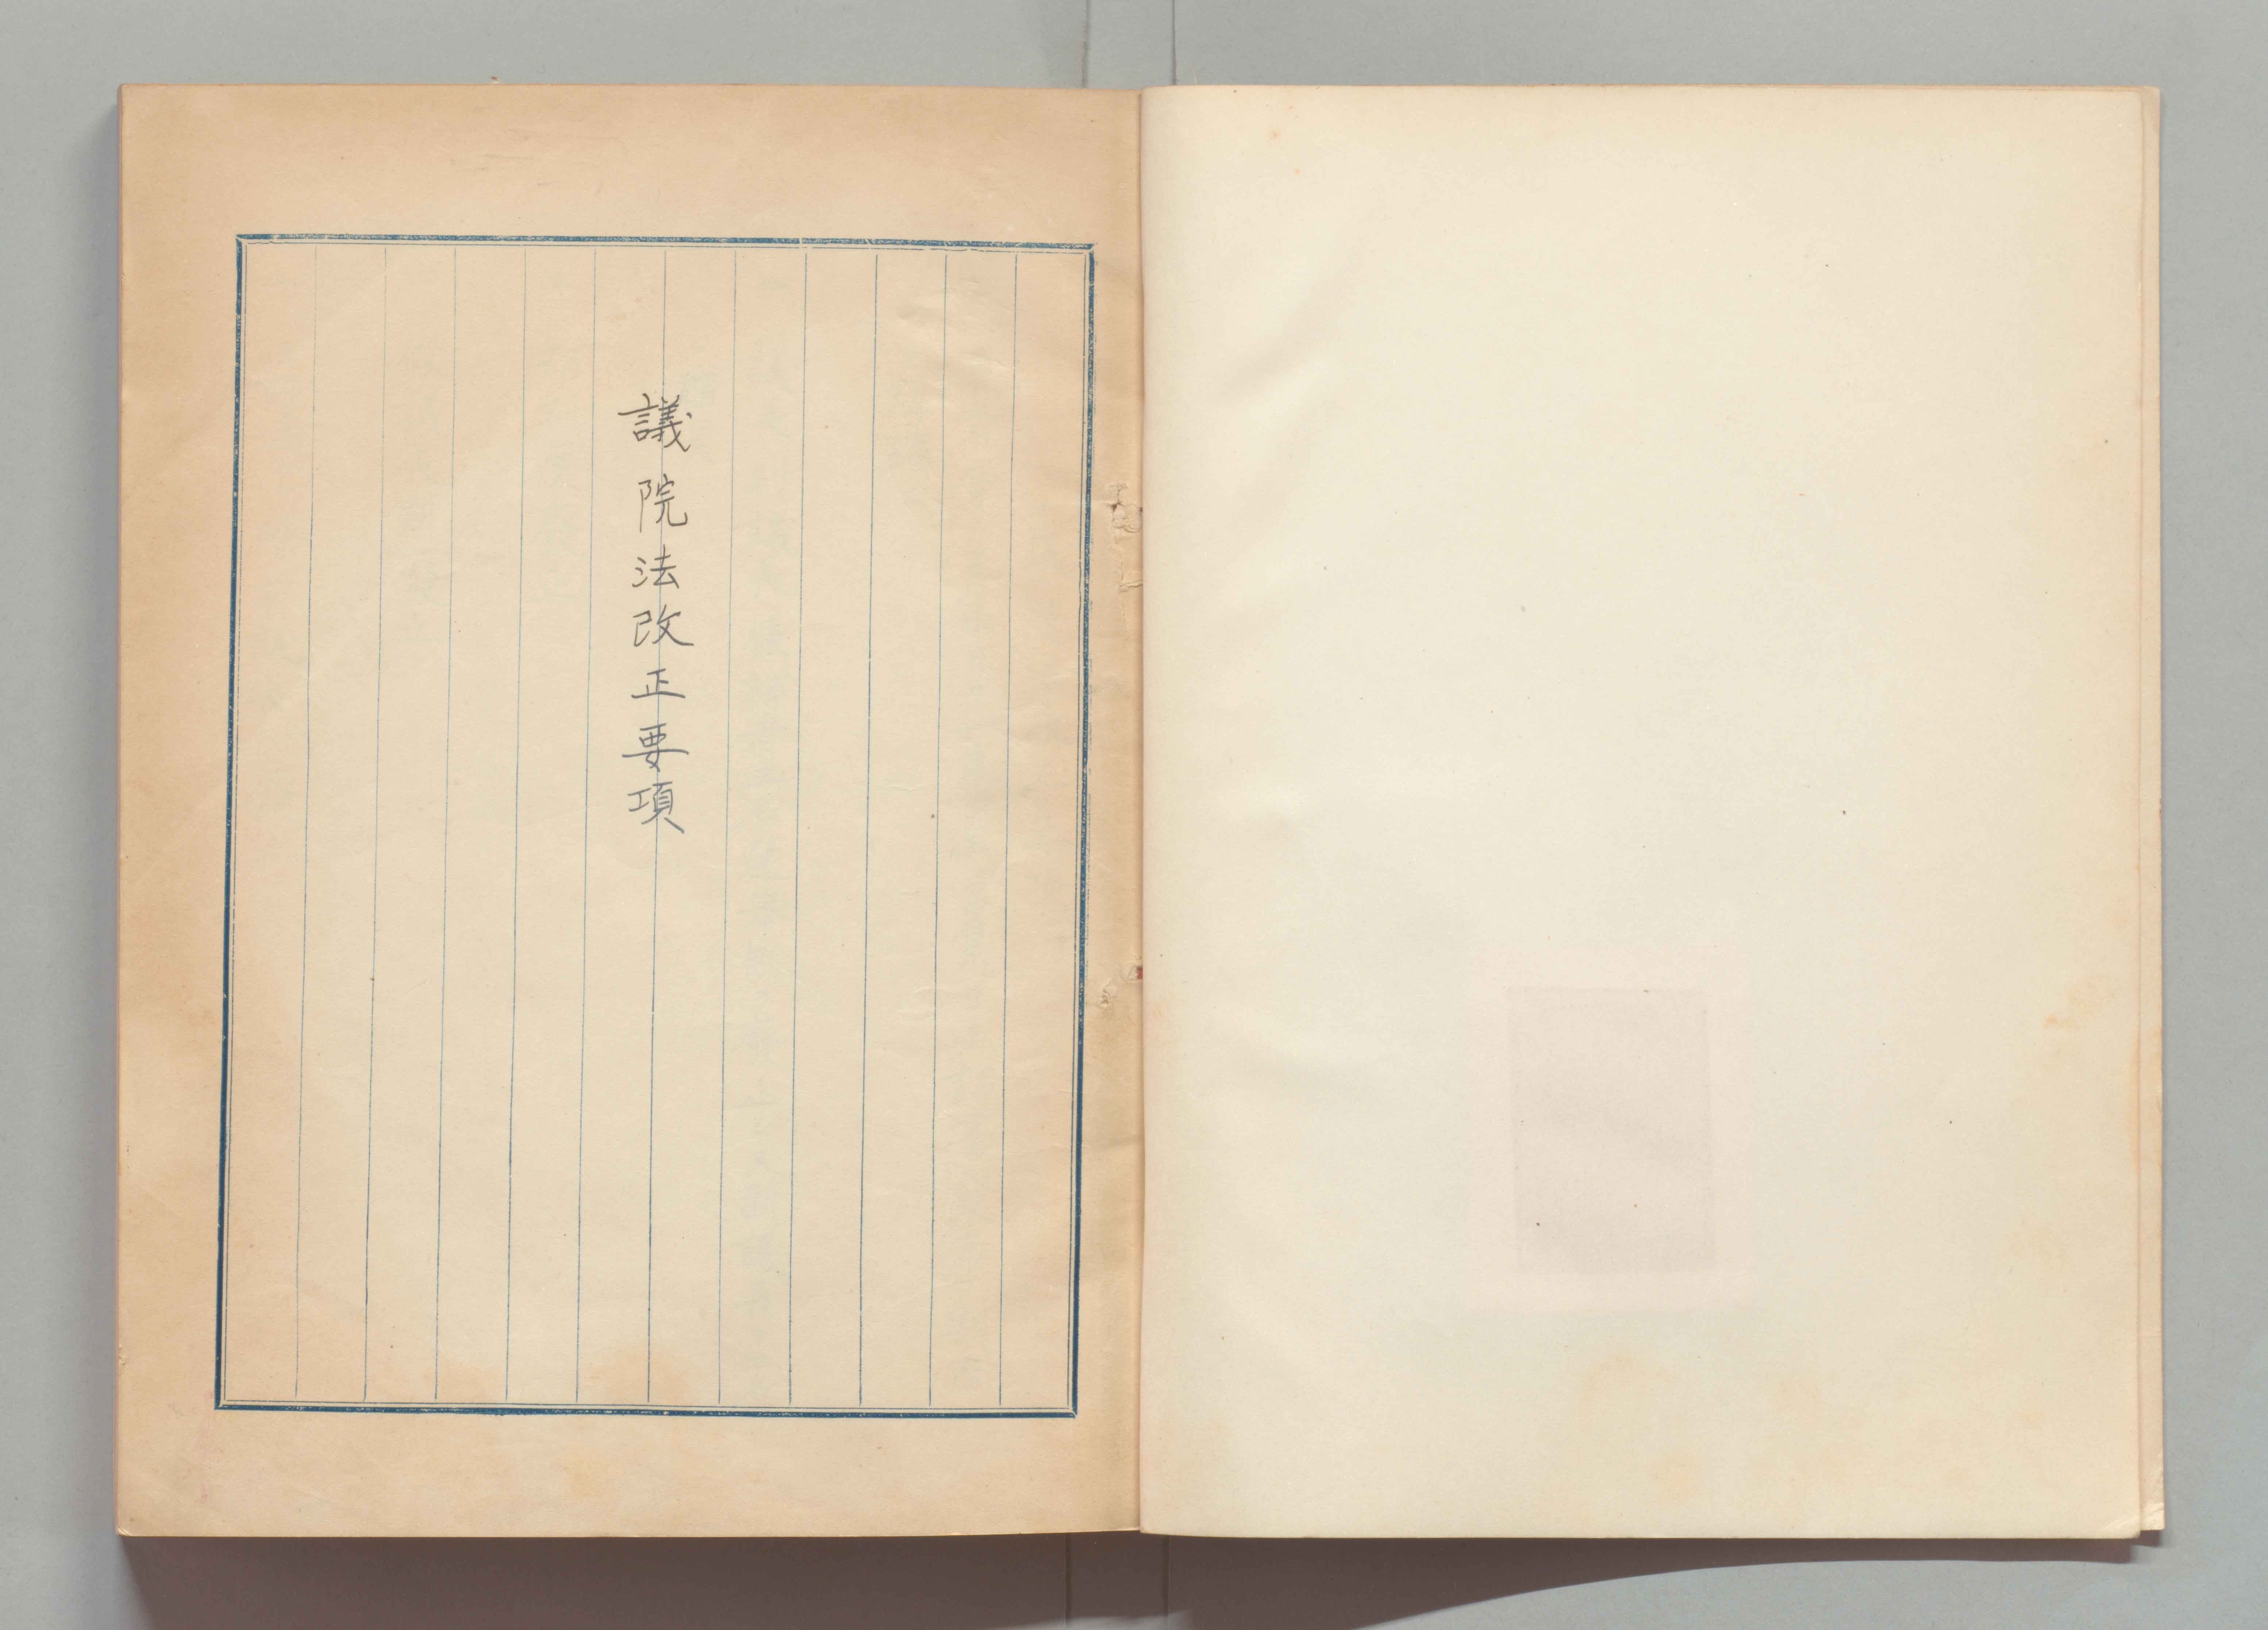 議院法改正要項